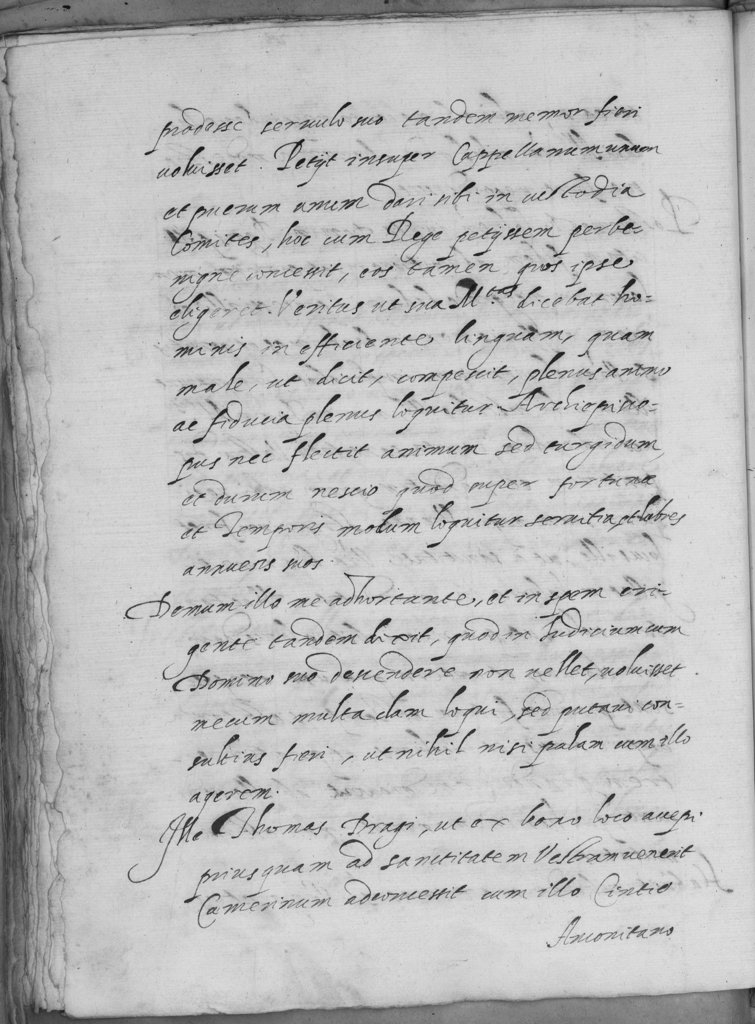 prodesse seruulo suo tandem memor fieri
uoluisset. Petijt insuper Cappellanum unum
et puerum unum dari sibi in custodia
Comites, hoc cum Rege petijssem perbe-
nigne concessit, eos tamen quos ipse
eligeret. Veritus ut sua M.tas dicebat ho-
minis in efficiente linguam, quam
male, ut dicit, compescit, plenus animo
ac fiducia plenus loquitur Archiepisco-
pus nec flectit animum sed turgidum,
et durum nescio quod super fortuna
et Temporis loquitur seruitia, et labores
annuesis suos.
Demum illo me adhortante, et in spem eri-
gente tandem dixit, quod in Iudicium cum
Domino suo descendere non uellet, uoluisset
mecum multa clam loqui, sed putaui con-
sultius fieri, ut nihil nisi palam cum illo
agerem.
Ille Thomas Dragi, ut ex bono loco accepi
priusquam ad sanctitatem Vestram uenerit
Camerinum adconcessit cum illo Cintio
Anconitano